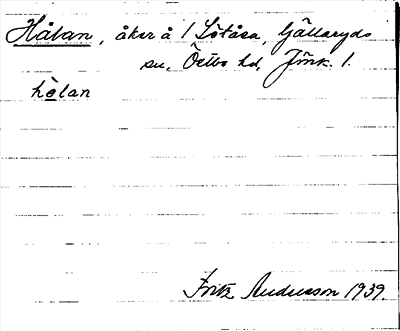 Hålan, åker å 1 Lötåsa, Gällaryds
sn, Östbo hd, Jönk. l.
hòlan
Fritz Andersson 1939.